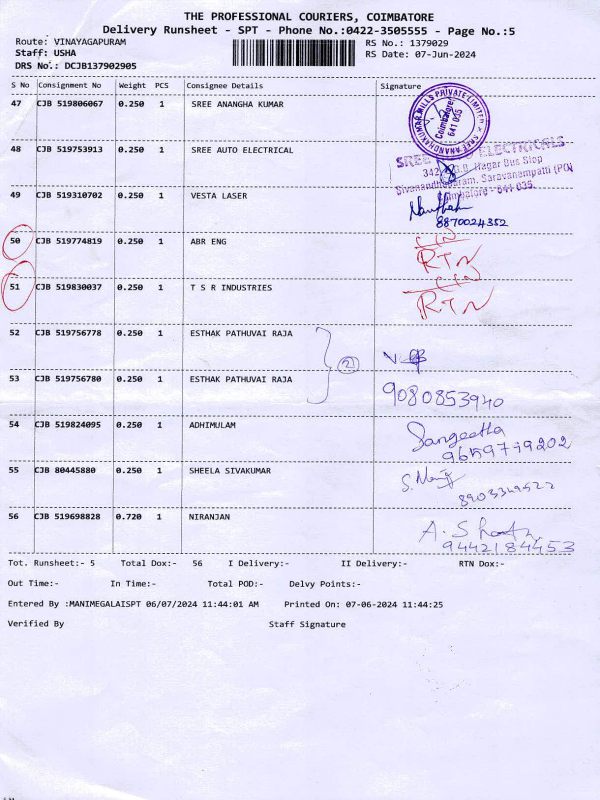 THE PROFESSIONAL COURIERS, COIMBATORE
Delivery Runsheet - SPT - Phone No.:0422-3505555 - Page No.:5
Route: VINAYAGAPURAM RS No.: 1379029
Staff: USHA RS Date: 07-Jun-2024
DRS No.: DCJB137902905
S No Consignment No Weight PCS Consignee Details Signature
47 CJB 519806067 0.250 1 SREE ANANGHA KUMAR
Coimbatore 641 035
48 CJB 519753913 0.250 1 SREE AUTO ELECTRICAL
SREE ELECTRICALS
Nagar Bus Stop
Sivanandhapuram, Saravanampatti (PO)
Coimbatore - 641 035.
49 CJB 519310702 0.250 1 VESTA LASER
8870024352
50 CJB 519774819 0.250 1 ABR ENG
RTN
51 CJB 519830037 0.250 1 T S R INDUSTRIES
RTN
52 CJB 519756778 0.250 1 ESTHAK PATHUVAI RAJA
2
53 CJB 519756780 0.250 1 ESTHAK PATHUVAI RAJA
9080853940
54 CJB 519824095 0.250 1 ADHIMULAM
Sangeetha
55 CJB 80445880 0.250 1 SHEELA SIVAKUMAR
56 CJB 519698828 0.720 1 NIRANJAN
9442184453
Tot. Runsheet:- 5 Total Dox:- 56 I Delivery:- II Delivery:- RTN Dox:-
Out Time:- In Time:- Total POD:- Delvy Points:-
Entered By :MANIMEGALAISPT 06/07/2024 11:44:01 AM Printed On: 07-06-2024 11:44:25
Verified By Staff Signature